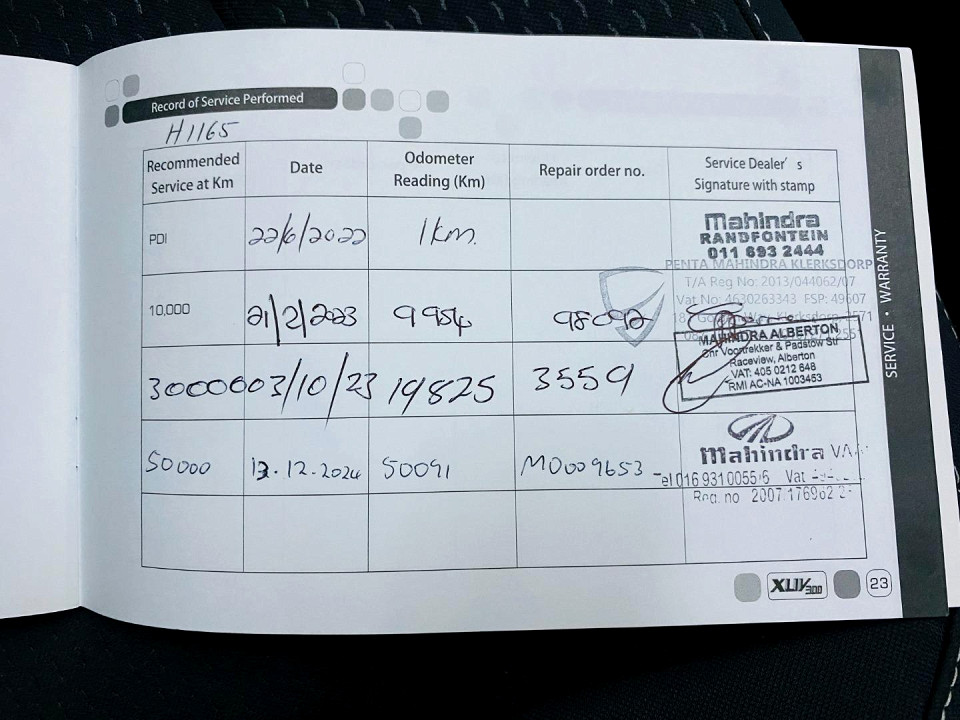 Record of Service Performed
H1165
Recommended Service at Km
Date
Odometer Reading (Km)
Repair order no.
Service Dealer's Signature with stamp
PDI
22/6/2022
1km.
Mahindra
RANDFONTEIN
011 693 2444
10,000
21/2/2023
9954
98092
PENTA MAHINDRA KLERKSDORP
T/A Reg No: 2013/044062/07
Vat No: 4630263343 FSP: 49607
Klerksdorp 2571
30000
03/10/23
19825
3559
MAHINDRA ALBERTON
Cnr Voortrekker & Padstow Str
Raceview, Alberton
VAT: 405 0212 848
RMI AC-NA 1003453
50000
13.12.2024
50091
M0009653
Mahindra
Tel 016 931 0055/6 Vat
Reg. no 2007/176962/2
XUV300
23
SERVICE • WARRANTY